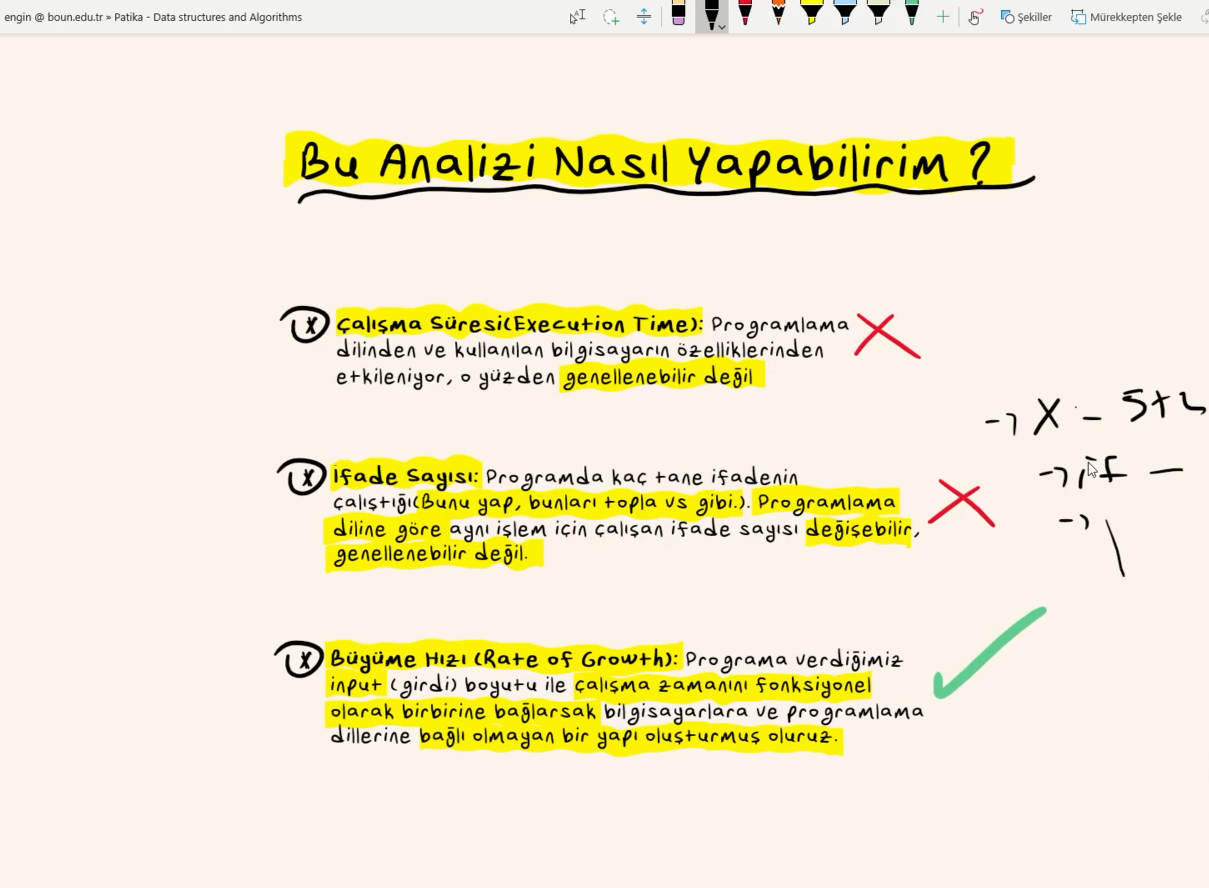 engin @ boun.edu.tr » Patika - Data structures and Algorithms
Şekiller
Mürekkepten Şekle
Bu Analizi Nasıl Yapabilirim ?
Çalışma Süresi(Execution Time): Programlama
dilinden ve kullanılan bilgisayarın özelliklerinden
etkileniyor, o yüzden genellenebilir değil
x - 5+2
if -
İfade Sayısı: Programda kaç tane ifadenin
çalıştığı(Bunu yap, bunları topla vs gibi.). Programlama
diline göre aynı işlem için çalışan ifade sayısı değişebilir,
genellenebilir değil.
Büyüme Hızı (Rate of Growth): Programa verdiğimiz
input (girdi) boyutu ile çalışma zamanını fonksiyonel
olarak birbirine bağlarsak bilgisayarlara ve programlama
dillerine bağlı olmayan bir yapı oluşturmuş oluruz.